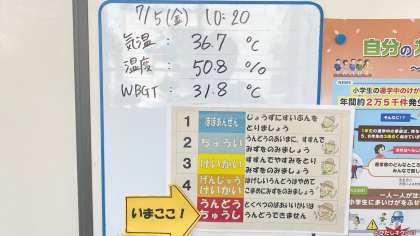 7/5(金) 10:20
気温: 36.7 ℃
湿度: 50.8 %
WBGT: 31.8 ℃
1 ほぼあんぜん じょうずにすいぶんを
とりましょう
2 ちゅうい うんどうのあいまに、すすんで
みずをのみましょう
3 けいかい すすんでやすみをとり
みずをのみましょう
4 げんじゅう
けいかい はげしいうんどうはやめて
こまめにみずをのみましょう
うんどう
ちゅうし とくべつのばあいいがいは
うんどうできません
いまここ!
自分の
小学生の通学中のけが
年間約2万5千件発生
そんなに!?
一人一人が注
小学生に多いけがをふせ